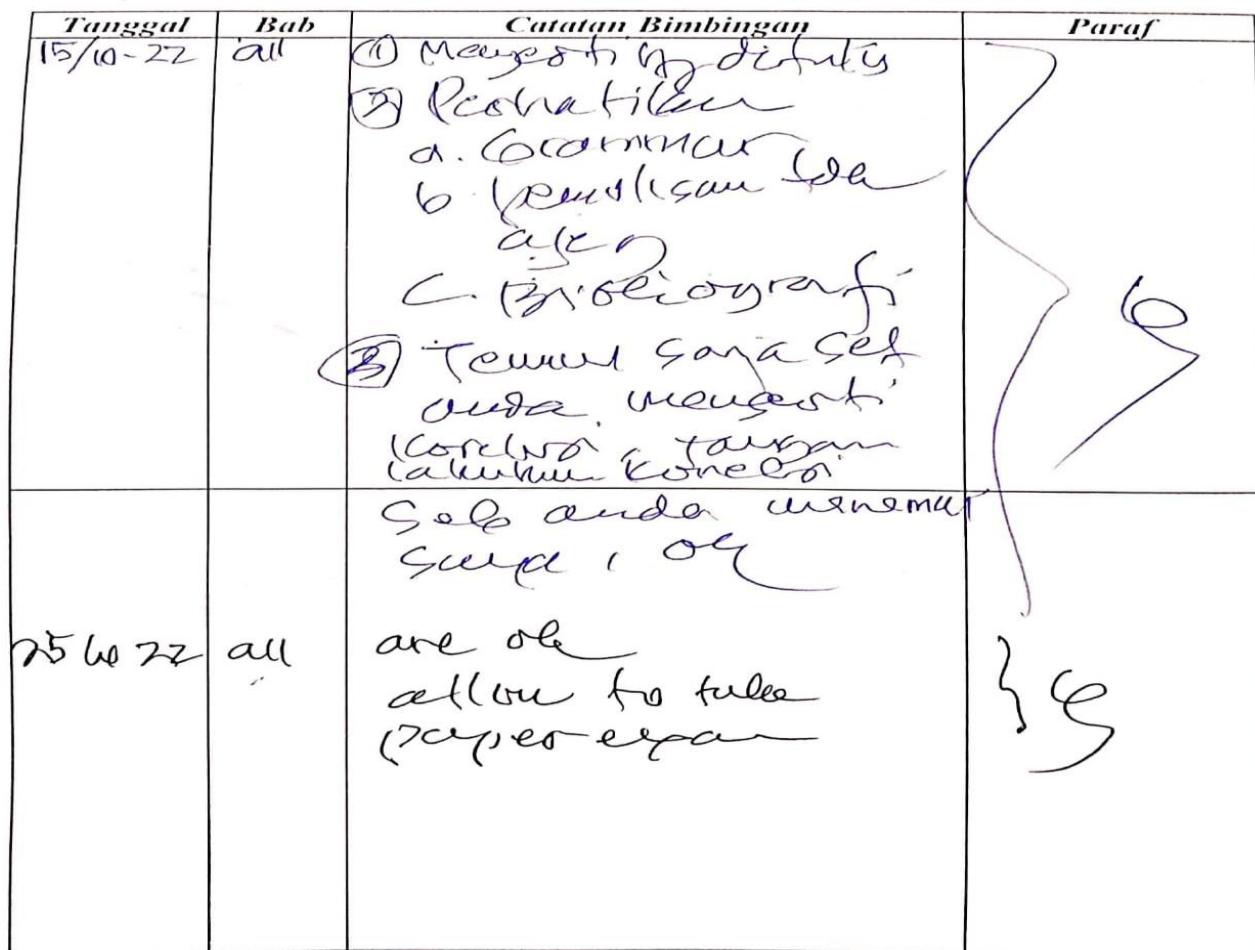 Tanggal Bab Catatan Bimbingan Paraf
15/10-22 all ① Mengerti yg ditulis
② Perhatikan
a. Grammar
b penulisan
c. Bibliografi
③ Temui saya set
anda mengerti
koreksi, jangan
lakukan koreksi
seb anda menemui
saya, ok
25 10 22 all are ok
allow to take
paper exam